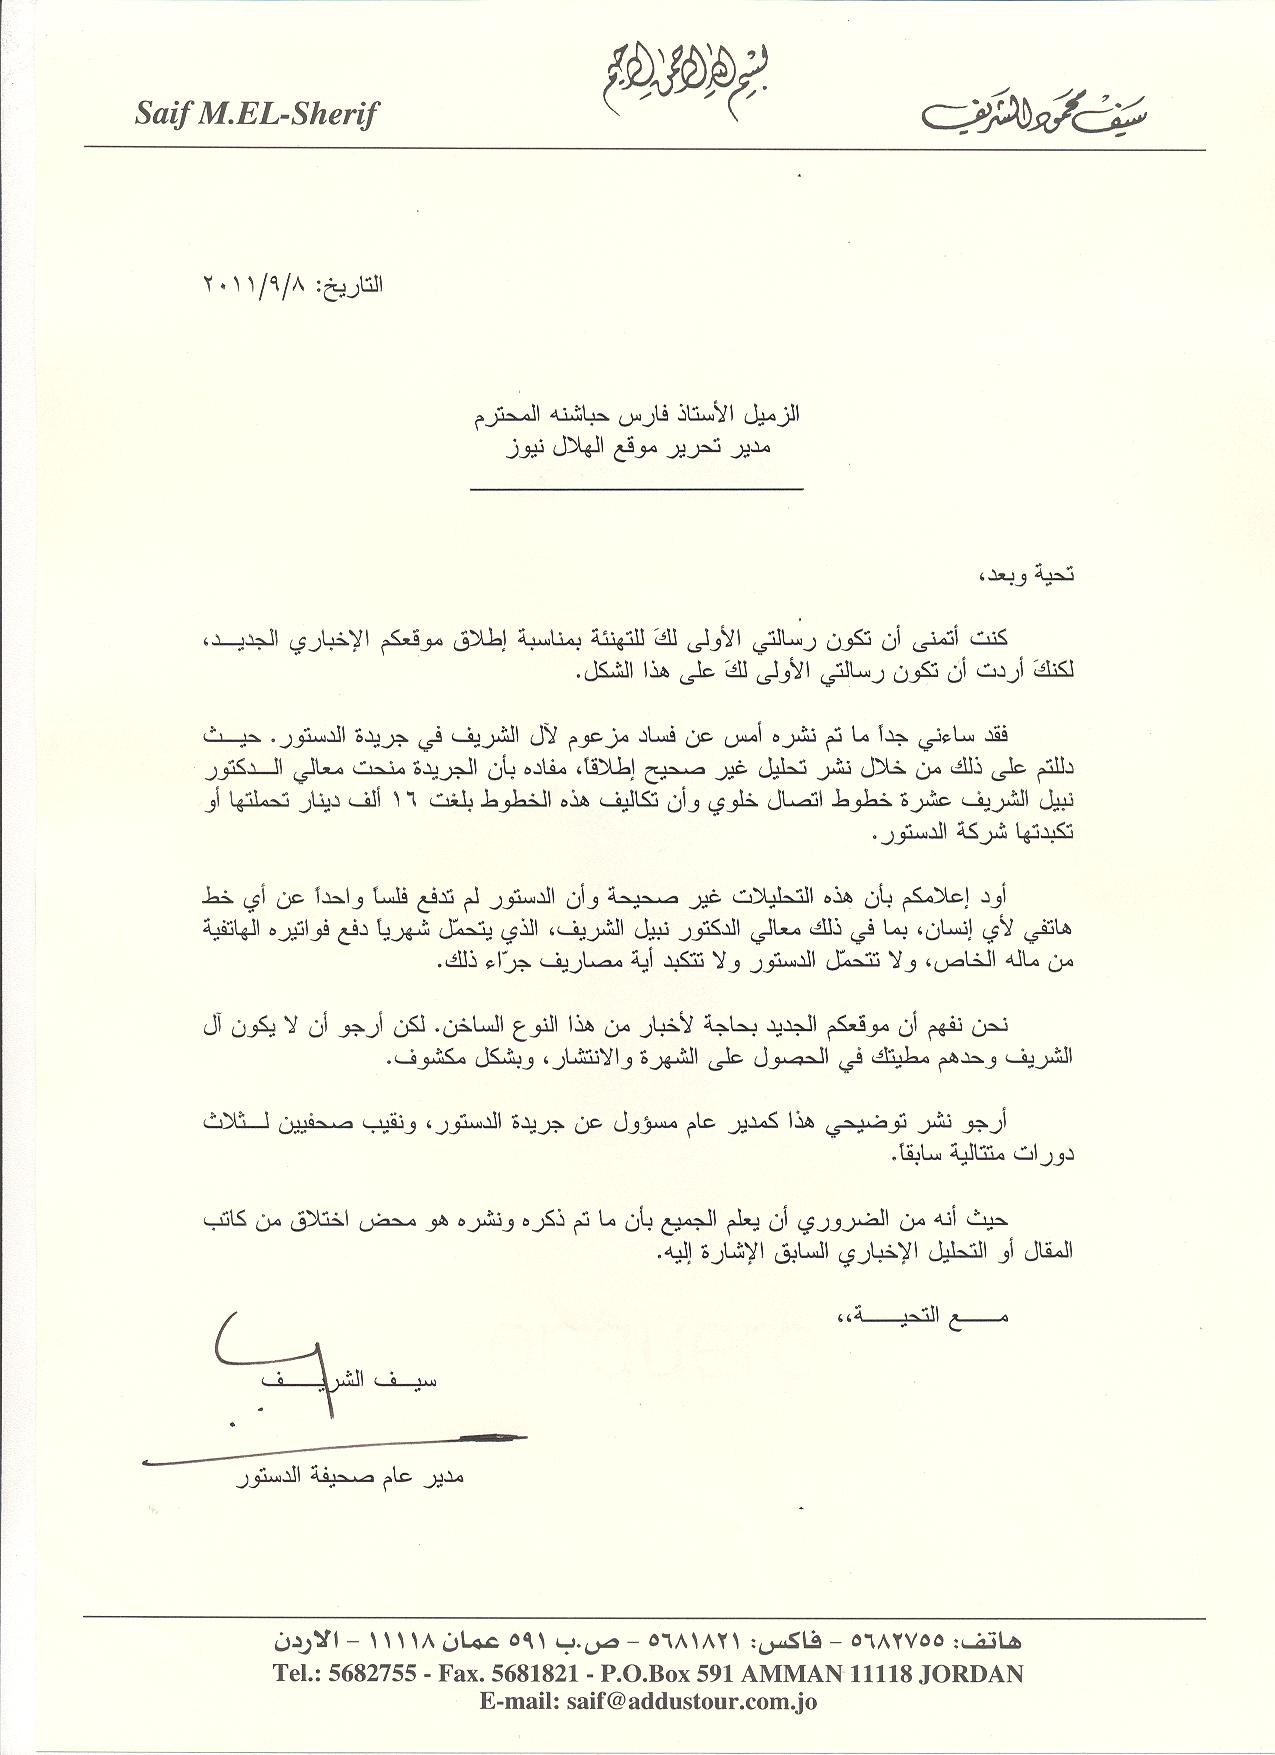 بسم الله الرحمن الرحيم
Saif M.EL-Sherif
سيف محمود الشريف
التاريخ: ٢٠١١/٩/٨
الزميل الأستاذ فارس حباشنه المحترم
مدير تحرير موقع الهلال نيوز
تحية وبعد،
كنت أتمنى أن تكون رسالتي الأولى لكَ للتهنئة بمناسبة إطلاق موقعكم الإخباري الجديـــد،
لكنكَ أردت أن تكون رسالتي الأولى لكَ على هذا الشكل.
فقد ساءني جداً ما تم نشره أمس عن فساد مزعوم لآل الشريف في جريدة الدستور. حيـث
دللتم على ذلك من خلال نشر تحليل غير صحيح إطلاقاً، مفاده بأن الجريدة منحت معالي الـدكتور
نبيل الشريف عشرة خطوط اتصال خلوي وأن تكاليف هذه الخطوط بلغت ١٦ ألف دينار تحملتها أو
تكبدتها شركة الدستور.
أود إعلامكم بأن هذه التحليلات غير صحيحة وأن الدستور لم تدفع فلساً واحداً عن أي خط
هاتفي لأي إنسان، بما في ذلك معالي الدكتور نبيل الشريف، الذي يتحمّل شهرياً دفع فواتيره الهاتفية
من ماله الخاص، ولا تتحمّل الدستور ولا تتكبد أية مصاريف جرّاء ذلك.
نحن نفهم أن موقعكم الجديد بحاجة لأخبار من هذا النوع الساخن. لكن أرجو أن لا يكون آل
الشريف وحدهم مطيتك في الحصول على الشهرة والانتشار، وبشكل مكشوف.
أرجو نشر توضيحي هذا كمدير عام مسؤول عن جريدة الدستور، ونقيب صحفيين لـــثلاث
دورات متتالية سابقاً.
حيث أنه من الضروري أن يعلم الجميع بأن ما تم ذكره ونشره هو محض اختلاق من كاتب
المقال أو التحليل الإخباري السابق الإشارة إليه.
مـــــع التحيـــــــة،،
سيــف الشريـــــف
مدير عام صحيفة الدستور
هاتف: ٥٦٨٢٧٥٥ – فاكس: ٥٦٨١٨٢١ – ص.ب ٥٩١ عمان ١١١١٨ – الاردن
Tel.: 5682755 - Fax. 5681821 - P.O.Box 591 AMMAN 11118 JORDAN
E-mail: saif@addustour.com.jo